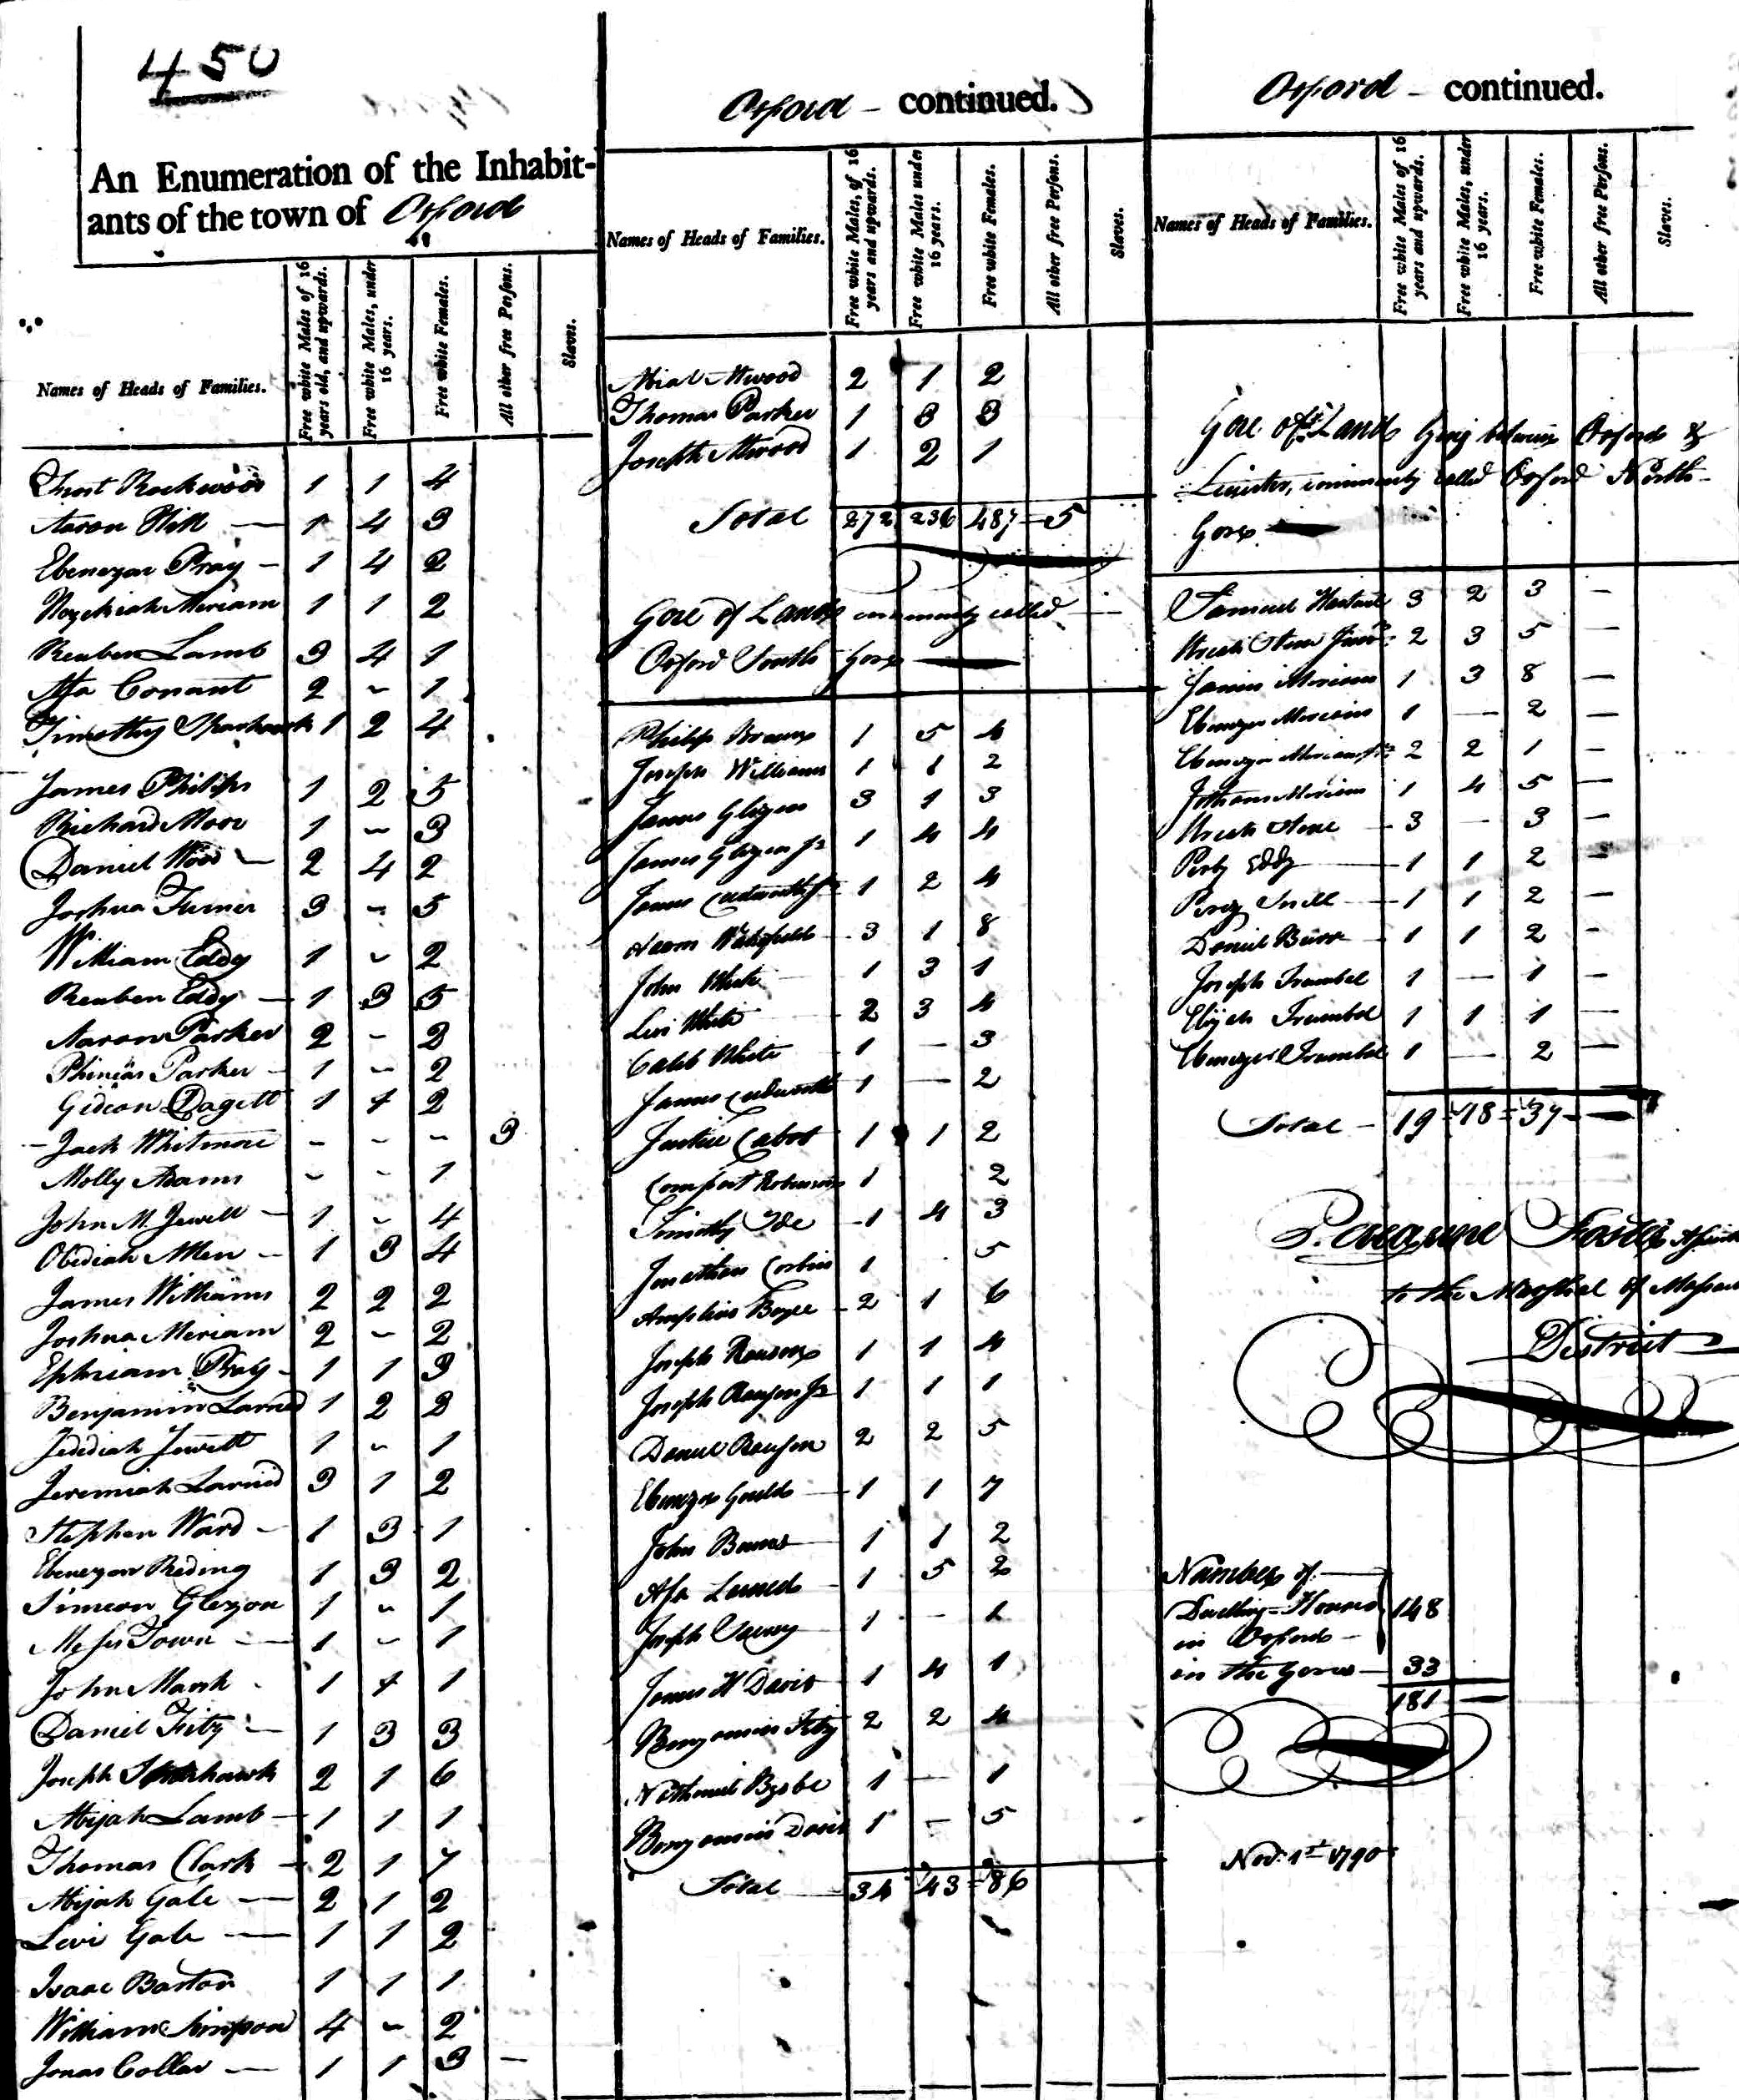 450
An Enumeration of the Inhabit-
ants of the town of Oxford
Names of Heads of Families.
Free white Males of 16 years old, and upwards.
Free white Males, under 16 years.
Free white Females.
All other free Persons.
Slaves.
Frost Rockwood 1 1 4
Aaron Hill — 1 4 3
Ebenezar Pray — 1 4 2
Hezekiah Meriam 1 1 2
Reuben Lamb 3 4 1
Asa Conant 2 - 1
Timothy Sparhawk 1 2 4
James Philips 1 2 5
Richard Moor 1 - 3
Daniel Wood — 2 4 2
Joshua Turner 3 - 5
William Eddy 1 - 2
Reuben Eddy — 1 3 5
Aaron Parker 2 - 2
Phineas Parker — 1 - 2
Gideon Dagett 1 1 2
Jack Whitmore - - - 3
Molly Adams - - 1
John M. Jewell — 1 - 4
Obediah Allen — 1 3 4
James Williams 2 2 2
Joshua Meriam 2 - 2
Ephriam Pray — 1 1 3
Benjamin Larned 1 2 2
Jedediah Jewett 1 - 1
Jeremiah Larned 3 1 2
Stephen Ward — 1 3 1
Ebenezar Reding 1 3 2
Simeon Glezon 1 - 1
Town — 1 - 1
John Marsh 1 1 1
Daniel Fitz — 1 3 3
Joseph Sparhawk 2 1 6
Abijah Lamb — 1 1 1
Thomas Clark — 2 1 7
Abijah Gale — 2 1 2
Levi Gale — 1 1 2
Isaac Barton 1 1 1
William Simpson 4 - 2
Jonas Collar — 1 1 3 —
Oxford — continued.
Names of Heads of Families.
Free white Males, of 16 years and upwards.
Free white Males under 16 years.
Free white Females.
All other free Persons.
Slaves.
Abial Atwood 2 1 2
Thomas Parker 1 3 3
Joseph Atwood 1 2 1
Total 272 236 487 5
Gore of Land commonly called
Oxford South Gore
Philip Brown 1 5 4
Joseph Williams 1 1 2
James Glezen 3 1 3
James Glezen Jr 1 4 4
James Cudworth Jr 1 2 4
Wakefield 3 1 8
John White 1 3 1
Levi White 2 3 4
Caleb White 1 — 3
James Cudworth 1 — 2
Cabot 1 1 2
Comfort Robinson 1 2
Timothy Ide 1 4 3
Jonathan Corbin 1 5
Amphion 2 1 6
Joseph Rawson 1 1 4
Joseph Rawson Jr 1 1 1
Daniel Rawson 2 2 5
Ebenezer Gould 1 1 7
John 1 1 2
Asa Larned 1 5 2
Joseph 1 — 1
James H Davis 1 4 1
Benjamin Fitz 2 2 4
Nathaniel 1 — 1
Benjamin Davis 1 — 5
Total 34 43 86
Oxford — continued.
Names of Heads of Families.
Free white Males of 16 years and upwards.
Free white Males, under 16 years.
Free white Females.
All other free Persons.
Slaves.
Gore of Land lying between Oxford &
Leicester, commonly called Oxford North
Gore
Samuel 3 2 3 —
Uriah Stone Junr 2 3 5 —
James Meriam 1 3 8 —
Ebenezer Meriam 1 — 2 —
Ebenezer Meriam Jr 2 2 1 —
Jotham Meriam 1 4 5 —
Uriah Stone 3 — 3 —
Eddy 1 1 2 —
Perez Snell 1 1 2 —
Daniel 1 1 2 —
Joseph Trumbel 1 — 1 —
Elijah Trumbel 1 1 1 —
Ebenezer Trumbel 1 — 2 —
Total — 19 18 37 —
Peregrine Foster
to the Marshal of
District
Number of
Dwelling=Houses 148
in Oxford
in the Gores — 33
181
Nov. 1st 1790